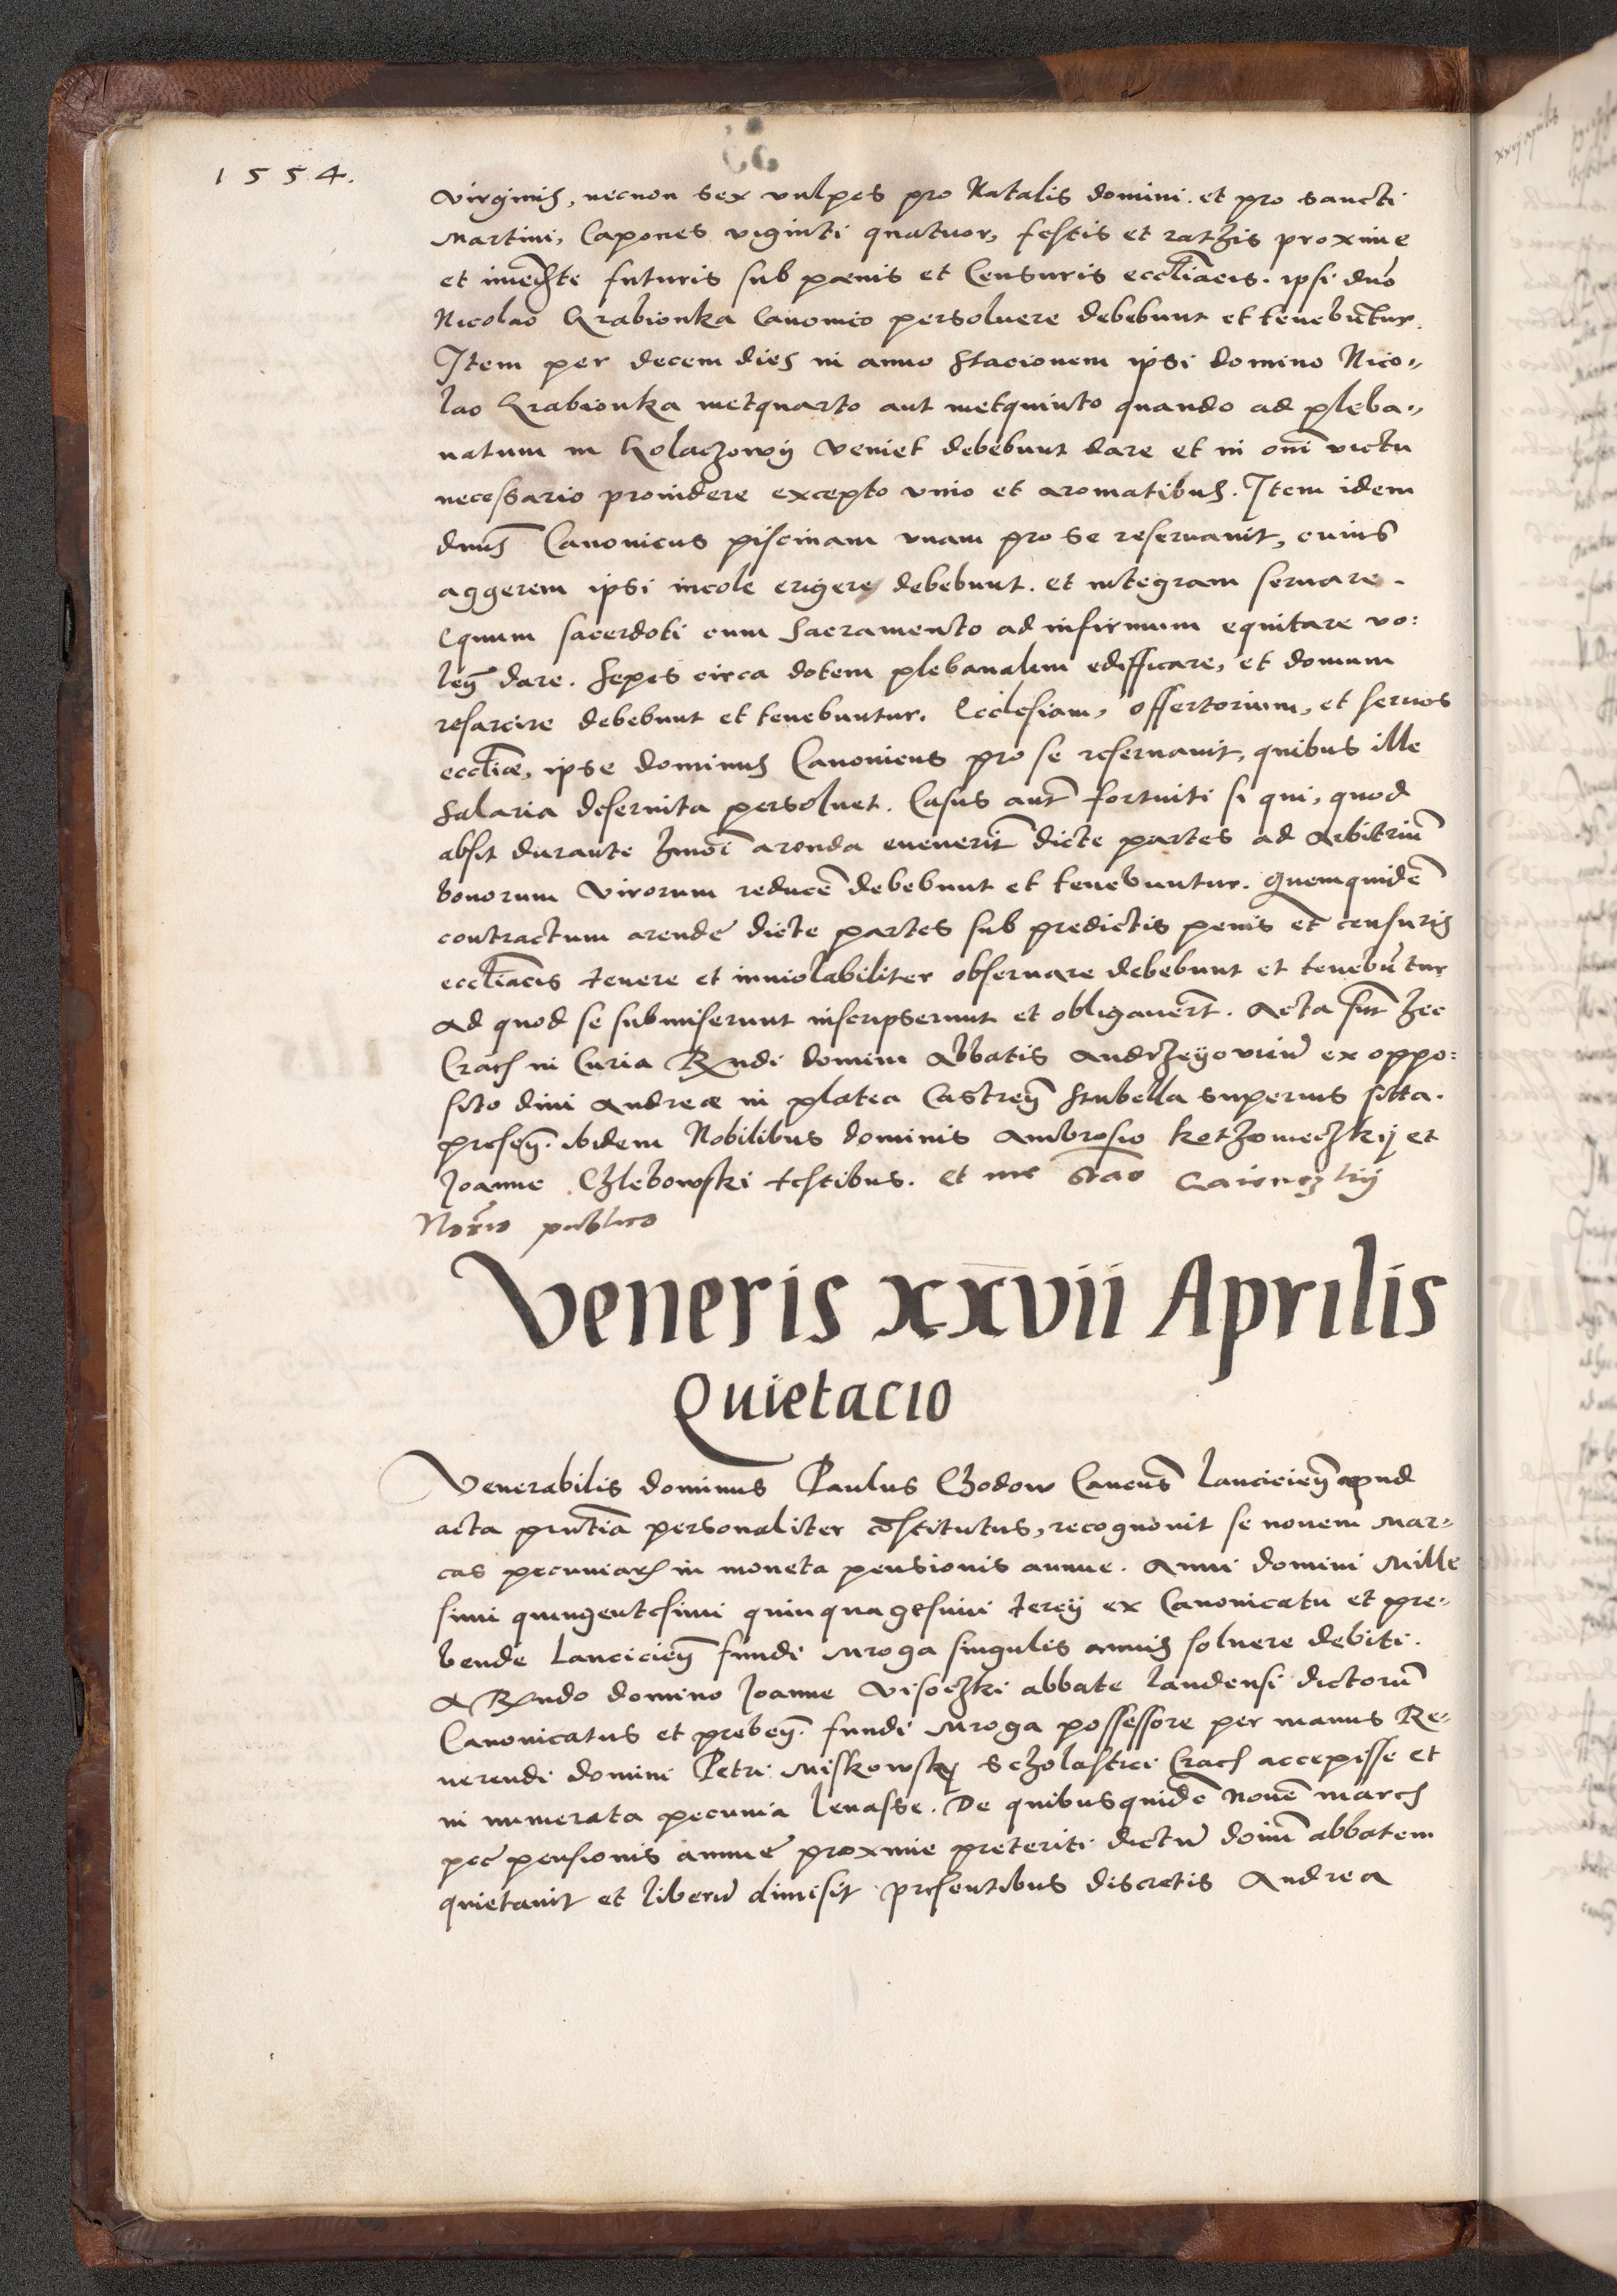 1554.
virginis, necnon sex vulpes pro Natalis domini. et pro sancti
Martini, Capones viginti quatuor, festis et ratis proxime
et immediate futuris sub pœnis et Censuris eccliacis. ipsi dno
Nicolao Grabionka Canonico persoluere debebunt et tenebuntur.
Item per decem dies in anno stacionem ipsi domino Nico„
lao Grabionka metquarto aut metquinto quando ad pleba„
natum in Kolaczowij veniet debebunt dare et in omi victu
necessario prouidere excepto vino et aromatibus. Item idem
dnus Canonicus piscinam vnam pro se reseruauit, cuius
aggerem ipsi incole erigere debebunt. et integram seruare.
Equum sacerdoti cum Sacramento ad infirmum equitare vo:
len dare. Sepes circa dotem plebanalem edifficare, et domum
resarcire debebunt et tenebuntur. Ecclesiam, offertorium, et seruos
eccliæ, ipse dominus Canonicus pro se reseruauit, quibus ille
salaria deseruita persoluet. Casus aut fortuiti si qui, quod
absit durante hmoi aronda euenerit dicte partes ad Arbitriu
bonorum virorum reducē debebunt et tenebuntur. Quemquidē
contractum arende dicte partes sub predictis penis et censuris
eccliacis tenere et inuiolabiliter obseruare debebunt et tenebūtur
ad quod se submiserunt inscripserunt et obligauert. Acta sut hec
Crac in Curia Rndi domini Abbatis Andrzeyouien ex oppo:
sito diui Andreæ in platea Castren stubella superius sitta.
presen. ibidem Nobilibus dominis Ambrosio et
Joanne Chlebowski testibus. et me Stao
Norio publico
Veneris xxvii Aprilis
Quietacio
Venerabilis dominus Paulus Chodow Cancus Lancicien apud
acta prntia personaliter cōstitutus, recognouit se nouem mar„
cas pecuniar in moneta pensionis annue. Anni domini Mille
simi quingentesimi quinquagesimi tercij ex Canonicatu et pre„
bende Lancicien fundi Mroga singulis annis soluere debiti.
A Rndo domino Joanne Visoczki abbate Landensi dictorū
Canonicatus et preben. fundi Mroga possessore per manus Re„
uerendi domini Petri Miskowskij Scholastici Crac accepisse et
in numerata pecunia leuasse. De quibusquidē nouē marcs
pec pensionis annue proxime preteriti dictū domū abbatem
quietauit et liberū dimisit presentibus discretis Andrea